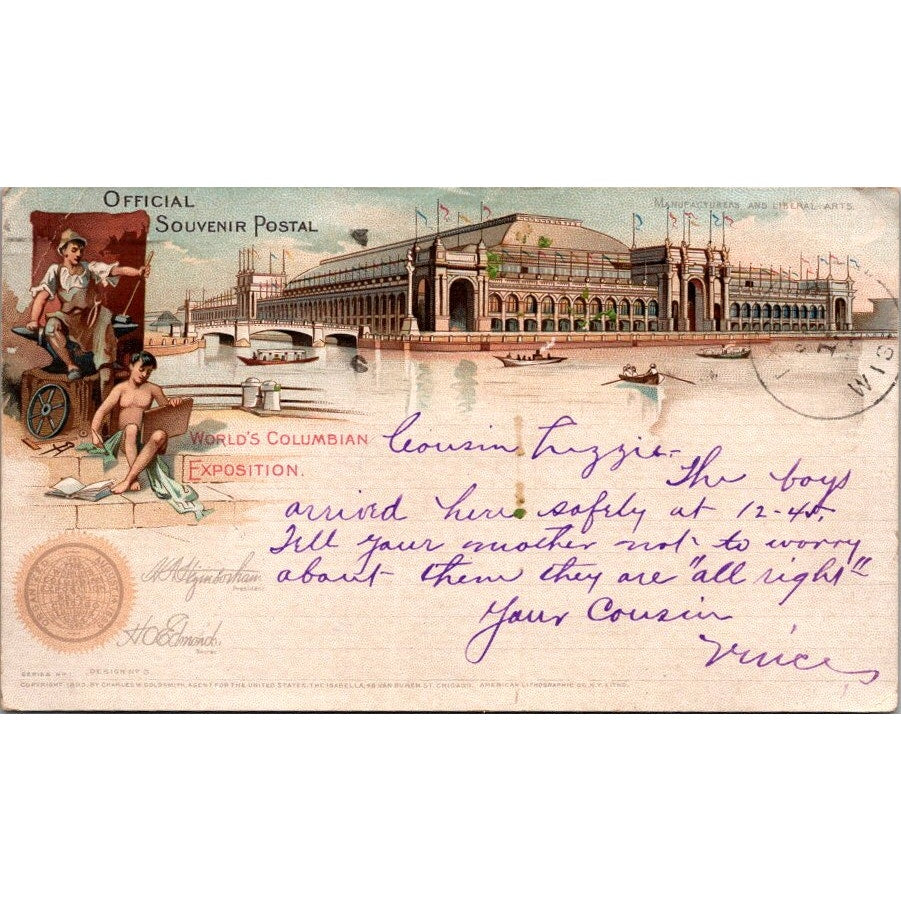 OFFICIAL
SOUVENIR POSTAL
MANUFACTURERS AND LIBERAL ARTS.
WIS
WORLD'S COLUMBIAN
EXPOSITION.
Cousin Lizzie-
The boys
arrived here safely at 12-45.
Tell your mother not to worry
about them they are "all right"
Your Cousin
Vince
President
H.O. Edmonds.
SERIES No 1 DESIGN No 5
COPYRIGHT 1893, BY CHARLES W. GOLDSMITH, AGENT FOR THE UNITED STATES, THE ISABELLA, 48 VAN BUREN ST. CHICAGO. AMERICAN LITHOGRAPHIC CO. N.Y. LITHO.